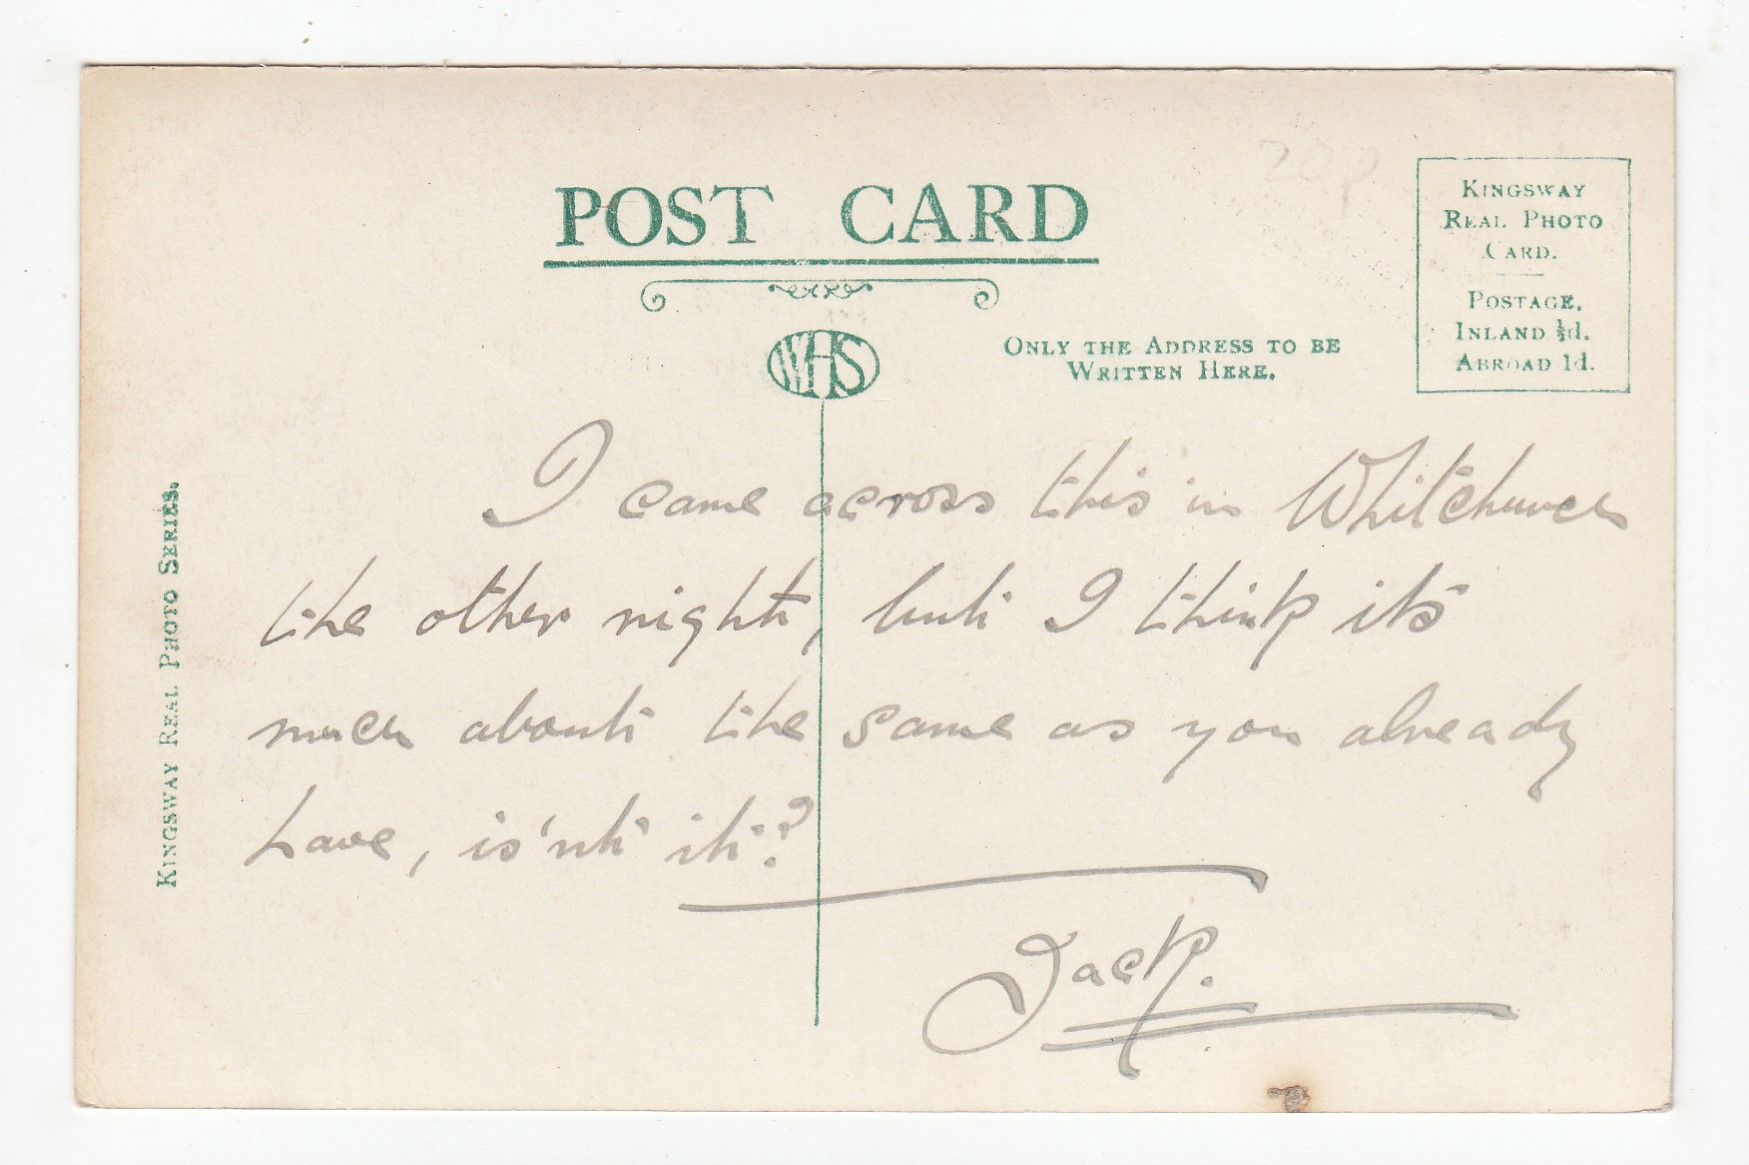 70p
POST CARD
WHS
ONLY THE ADDRESS TO BE
WRITTEN HERE.
KINGSWAY
REAL PHOTO
CARD.
POSTAGE,
INLAND ½d.
ABROAD 1d.
KINGSWAY REAL PHOTO SERIES.
I came across this in Whitchurch
the other night, but I think its
much about the same as you already
have, is'nt it?
Jack.